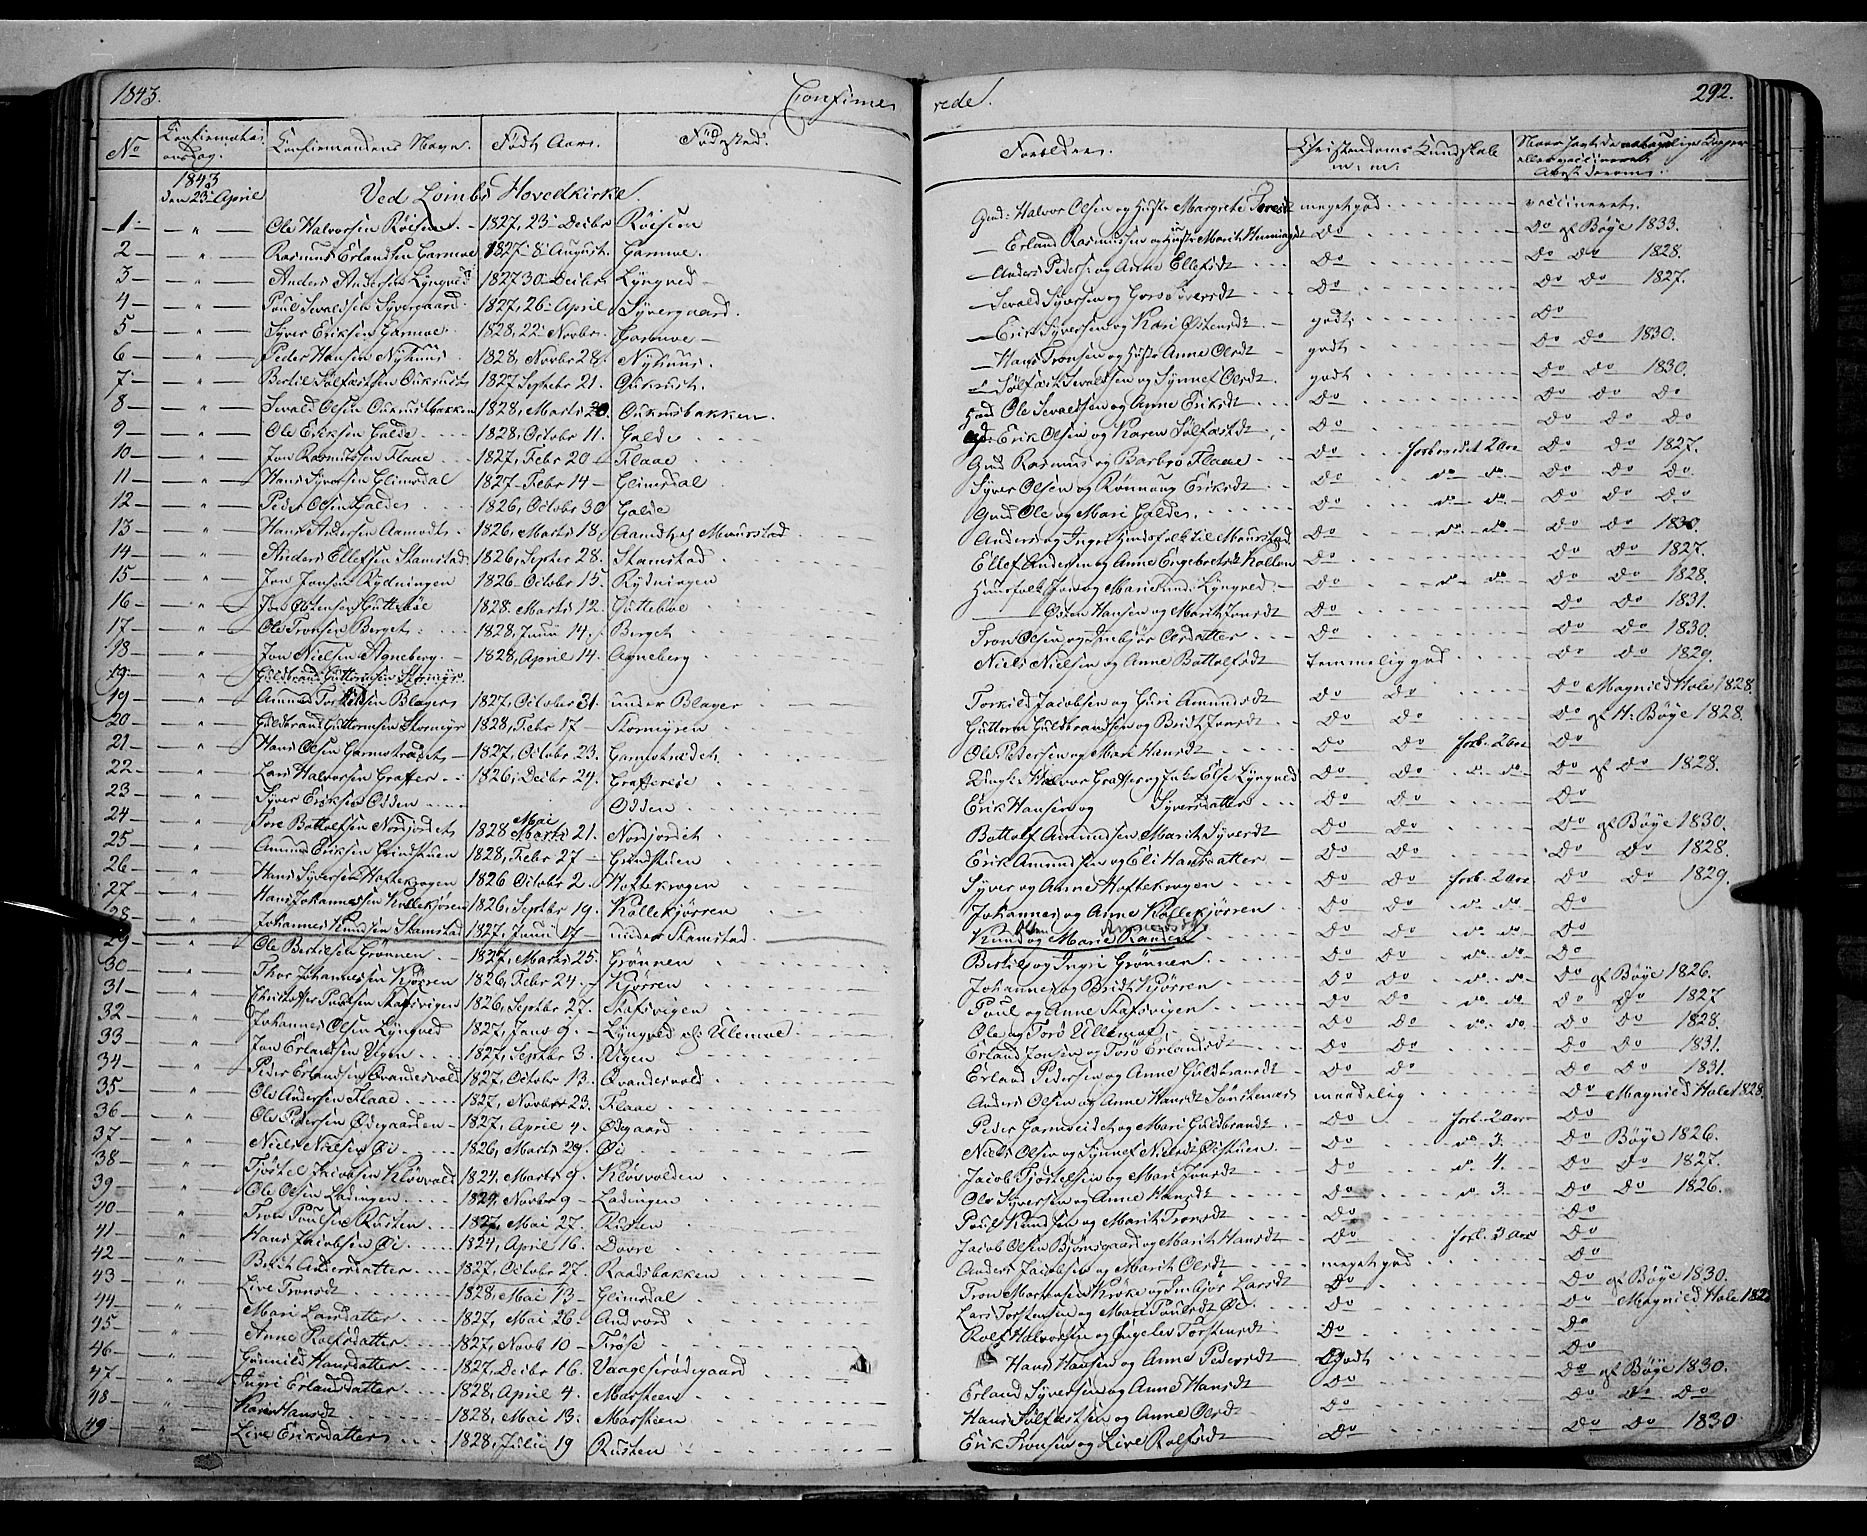 1843. Confirme rede. 292.
No Confirmations dag. Confirmandens Navn. Født Aar. Fødested. Forældre. Christendoms Kundskab m. m.
1843 den 23 April Ved Lombs Hovedkirke.
1 Ole Halvorsen Röisem 1827, 23 Decbr Röisem Gmd: Halvor Olsen og Hustr Margrethe meget god vaccineret.
2 Rasmus Erlandsen Garmoe 1827 8 August Garmoe. Erland Rasmussen og Hustr Marit Do Do af Böye 1833.
3 Anders Andersen Lyngved 1827 30 Decbr Lyngved Anders Peders: og Anne Ellefsdt Do Do Do 1828.
4 Poul Sevaldsen Syvergaard 1827, 26 April Syvergaard. Sevald Syversen og Do Do Do 1827.
5 Syver Eriksen Garmoe 1828, 22 Novbr Garmoe Erik Syversen og Kari Östensdt godt Do
6 Peder Hansen Nyhuus 1828, Novbr 28. Nyhuus. Hans Tronsen og Hustr Anne Olsdt godt Do Do 1830.
7 Bertil Sölfastsen Oukrust 1827 Septebr 21. Oukrust. Sölfast Sevaldsen og Synnef Olsdt. godt Do Do 1830.
8 Sevald Olsen Oukrustbakken 1828, Marts 20. Oukrusbakken. Ole Sevaldsen og Anne Eriksdt Do Do Do Do
9 Ole Eriksen Galde 1828, Octobr 11. Galde Erik Olsen og Karen Sölfastdt Do Do Do Do
10 Jon Rasmussen Flaae 1827, Febr 20 Flaae Gmd Rasmus og Barbro Flaae Do forberedet 2 Aar Do Do 1827.
11 Hans Syversen Glimsdal 1827 Febr 14 Glimsdal Syver Olsen og Rönnaug Eriksdt Do do do Do Do Do
12 Peder Olsen Galde 1826, Octobr 30 Galde Gmd Ole og Mari Galde. Do do do Do Do Do
13 Hans Andersen Aamodt 1826, Marts 18. Aamodt Anders og Ingri Huusfolk til Do do do Do Do 1830
14 Anders Ellefsen Stamstad 1826, Septbr 28. Stamstad Ellef Andersen og Anne Engebretsdt Do Do Do 1827.
15 Jon Jonsen Rydningen 1826 Octobr 15. Rydningen Huusfolk Jon og Mari Lyngved Do do do Do Do 1828.
16 Jon Östensen Gutteböe 1828. Marts 12. Gutteböe Östen Hansen og Marit Jonsdt Do Do Do 1831.
17 Ole Tronsen Berget 1828, Juni 14. Berget Tron Olsen og Imbjör Olsdatter Do Do Do 1830.
18 Jon Nielsen Agneberg 1828, April 14. Agneberg Niels Nielsen og Anne Bottolfsdt temmelig god Do Do 1829.
19 Guldbrand Guttormsen Stormyr
19 Amund Torkildsen Blager 1827, October 31. under Blager Torkild Jacobsen og Guri Amundsdt Do Do Do Magnild Hole 1828.
20 Guldbrand Guttormsen Stormyr 1828, Febr 17 Stormyren Guttorm Guldbrandsen og Brit Jonsdt Do Do Do af H. Böye 1828.
21 Hans Olsen Garmotrædet 1827, October 23. Garmotrædet Ole Pedersen og Mari Hansdt Do Do forb. 2 Aar Do
22 Lars Halvorsen Graffer 1826, Decbr 24. Halvor Graffer og Else Lyngved Do Do do do Do af Do 1828.
23 Syver Eriksen Odden Odden Erik Hansen og Syversdatter Do Do Do
24 Tore Bottolfsen Nordjordet 1828 Mai Marts 21. Nordjordet Bottolf Amundsen Marit Syverdt Do Do Do af Böye 1830.
25 Amund Eriksen Grindstuen 1828, Febr 27 Grindstuen Erik Amundsen og Eli Hansdatter Do Do Do Do 1828.
26 Hans Syversen Hoftekrogen 1826 Octobr 2. Hoftekrogen Syver og Anne Hoftekrogen Do Do forb. 2 Aar Do Do 1829.
27 Hans Johannessen Kollekjören 1826, Septbr 19. Kollekjörren Johannes og Anne Kollekjörren Do Do do do Do
28 Johannes Knudsen Stamstad 1827, Juni 17 under Stamstad. Knud og Marie Do Do do do Do
29 Ole Bertilsen Grönnen 1827, Marts 25. Grönnen Bertil og Ingri Grönnen Do Do do do Do
30 Thor Johannessen Kjörren 1826, Febr 24. Kjörren Johannes og Brit Kjörren Do Do do do Do af Böye 1826.
31 Christoffer Poulsen Stafsvigen 1826, Septbr 27. Stafsvigen Poul og Anne Stafsvigen Do Do do do Do Do 1827
32 Johannes Olsen Lyngved 1827, Janr 9. Lyngved Ulemoe Ole og Torö Ullemoe Do Do do do Do Do 1828.
33 Jon Erlandsen Vigen 1827, Septbr 3. Vigen Erland Jonsen og Torö Erlandsdt Do Do Do Do 1831.
34 Peder Erlandsen Qvandesvold 1827, Octobr 13. Qvandesvold Erland Pedersen og Anne Guldbrandsdt Do Do Do Do 1831.
35 Ole Andersen Flaae 1827, Novbr 23. Flaae Anders Olsen og Anne Hansdt maadelig Do Magnild Hole 1828.
36 Ole Pedersen Ödegaarden 1827, April 4. Ödegaard Peder og Mari Guldbrandsdt Do forb. 2 Aar Do
37 Niels Nielsen Öi 1826, Marts 29. Öi Niels Olsen og Synnef Nielsdt Do do 3. Do Böye 1826.
38 Tjöstel Jacobsen Klövvold 1824, Marts 9. Klövvolden Jacob Tjöstelsen og Mari Jonsdt Do do 4. Do Do 1827.
39 Ole Olsen Ladingen 1824, Novbr 9 Ladingen Ole Syversen og Anne Hansdt Do do 3. Do Do 1826.
40 Tron Poulsen Rusten 1827, Mai 27. Rusten Poul Knudsen og Marit Tronsdt Do Do
41 Hans Jacobsen Öi 1824, April 16. Dovre Jacob Olsen Bjørnsgaard og Marit Hansdt Do forb. 3 Aar Do
42 Berit Andersdatter 1827, Octobr 27. Raadsbakken Anders Jacobsen og Marit Olsdt meget god Do
43 Live Tronsdt 1828, Mai 13 Glimsdal Tron og Imbjör Larsdt Do Do af Böye 1830.
44 Mari Larsdatter 1827, Mai 26. Andvord Lars Torstensen og Mari Poulsdt Öi Do Do Magnild Hole
45 Anne Rolfsdatter 1827, Novb 10 Rolf Halvorsen og Ingeleiv Torstensdt Do Do
46 Gunnild Hansdatter 1827, Decbr 16. Hans Hansen og Anne Pedersdt Godt Do
47 Ingri Erlandsdatter 1828, April 4. Marsteen Erland Syversen og Anne Hansdt Do Do af Böye 1830.
48 Kari Hansdt 1828, Mai 13. Marsteen Hans Sölfastsen og Anne Olsdt Do Do Do Do
49 Live Eriksdatter 1828, Julii 19 Rusten Erik Tronsen og Live Rolfsdt Do Do Do 1830